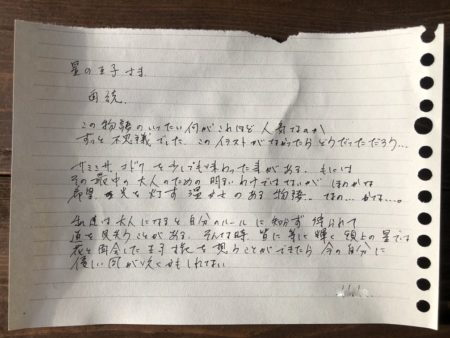 星の王子さま
この物語のいったい何がこれほど人気なのか
ずっと不思議だった。このイラストがなかったらどうだっただろう…
サミシサ、コドクを少しでも味わった事がある、もしくは
その最中の大人のための明るいわけではないが ほのかな
灯す温かさのある物語。なの…かな…。
私達は大人になると自分のルールに知らず縛られて
道を見失うことがある。そんな時、皆に等に輝く頭上の星で
花と再会した王子様を想うことができたら 今の自分に
優しい風が吹くかもしれない